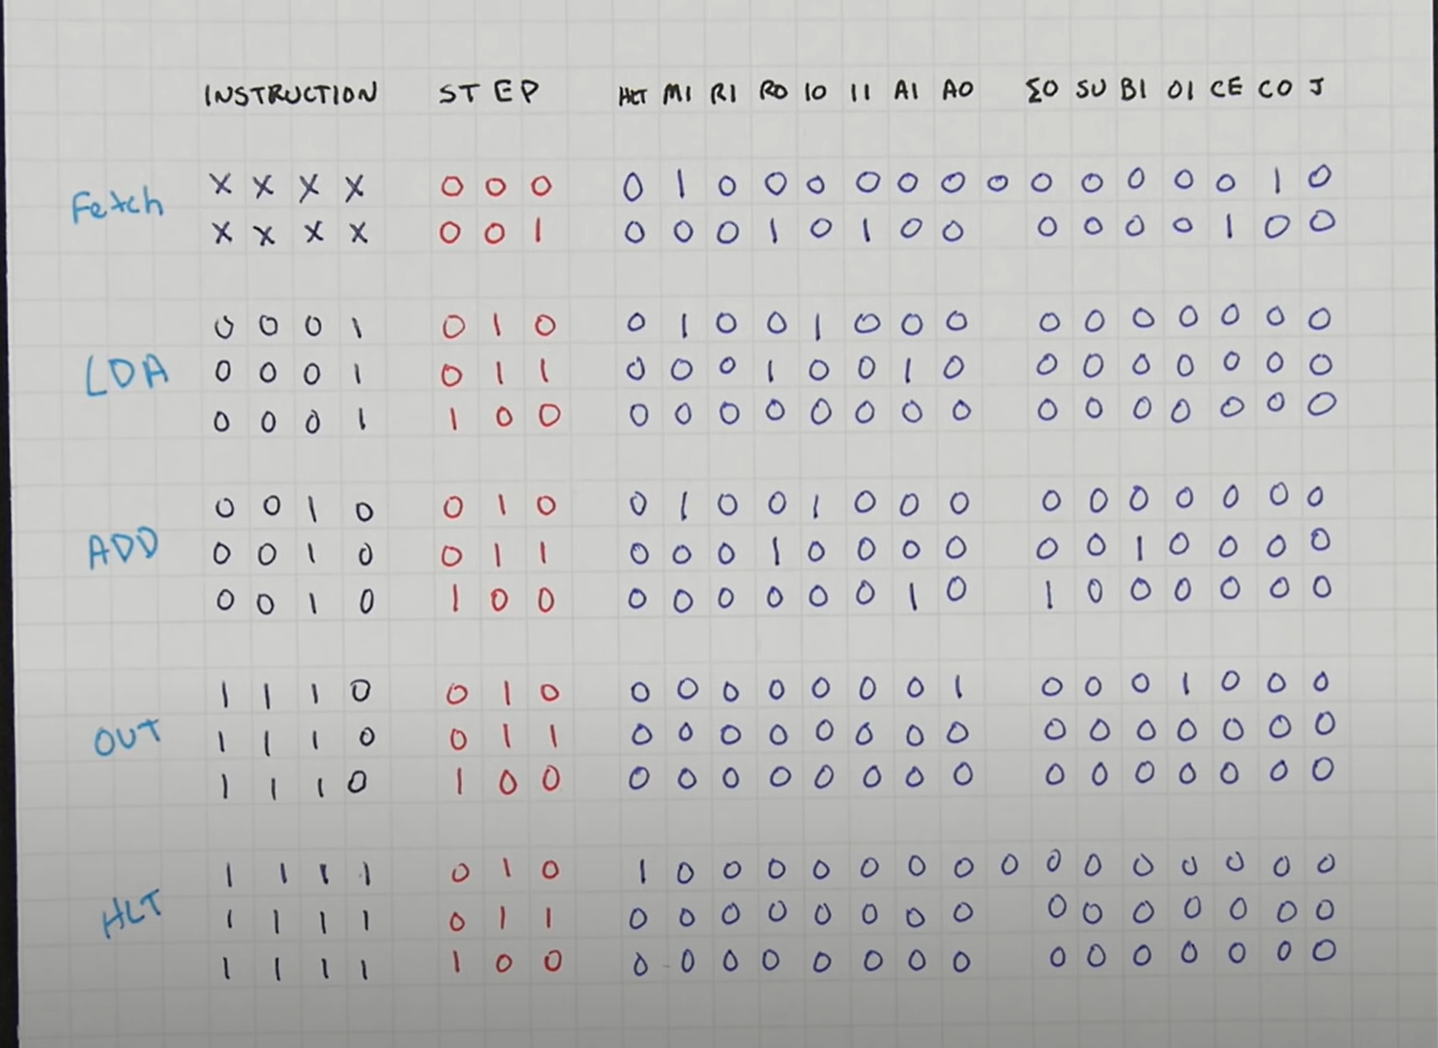 INSTRUCTION STEP HLT MI RI RO IO II AI AO ΣO SU BI OI CE CO J
Fetch
X X X X 0 0 0 0 1 0 0 0 0 0 0 0 0 0 0 0 0 1 0
X X X X 0 0 1 0 0 0 1 0 1 0 0 0 0 0 0 1 0 0
LDA
0 0 0 1 0 1 0 0 1 0 0 1 0 0 0 0 0 0 0 0 0 0
0 0 0 1 0 1 1 0 0 0 1 0 0 1 0 0 0 0 0 0 0 0
0 0 0 1 1 0 0 0 0 0 0 0 0 0 0 0 0 0 0 0 0 0
ADD
0 0 1 0 0 1 0 0 1 0 0 1 0 0 0 0 0 0 0 0 0 0
0 0 1 0 0 1 1 0 0 0 1 0 0 0 0 0 0 1 0 0 0 0
0 0 1 0 1 0 0 0 0 0 0 0 0 1 0 1 0 0 0 0 0 0
OUT
1 1 1 0 0 1 0 0 0 0 0 0 0 0 1 0 0 0 1 0 0 0
1 1 1 0 0 1 1 0 0 0 0 0 0 0 0 0 0 0 0 0 0 0
1 1 1 0 1 0 0 0 0 0 0 0 0 0 0 0 0 0 0 0 0 0
HLT
1 1 1 1 0 1 0 1 0 0 0 0 0 0 0 0 0 0 0 0 0 0 0
1 1 1 1 0 1 1 0 0 0 0 0 0 0 0 0 0 0 0 0 0 0
1 1 1 1 1 0 0 0 0 0 0 0 0 0 0 0 0 0 0 0 0 0